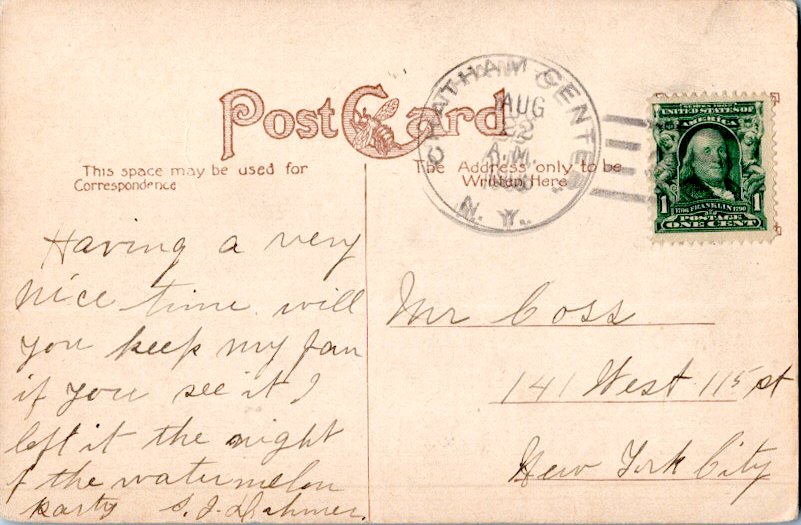 Post Card
CHATHAM CENTER
AUG
22
A.M.
N.Y.
SERIES 1902
UNITED STATES OF
AMERICA
1 1
1706 FRANKLIN 1790
POSTAGE
ONE CENT
This space may be used for
Correspondence
The Address only to be
Written Here
Having a very
nice time will
you keep my fan
if you see it I
left it the night
of the watermelon
party S. J.
Mr Coss
141 West 115 st
New York City